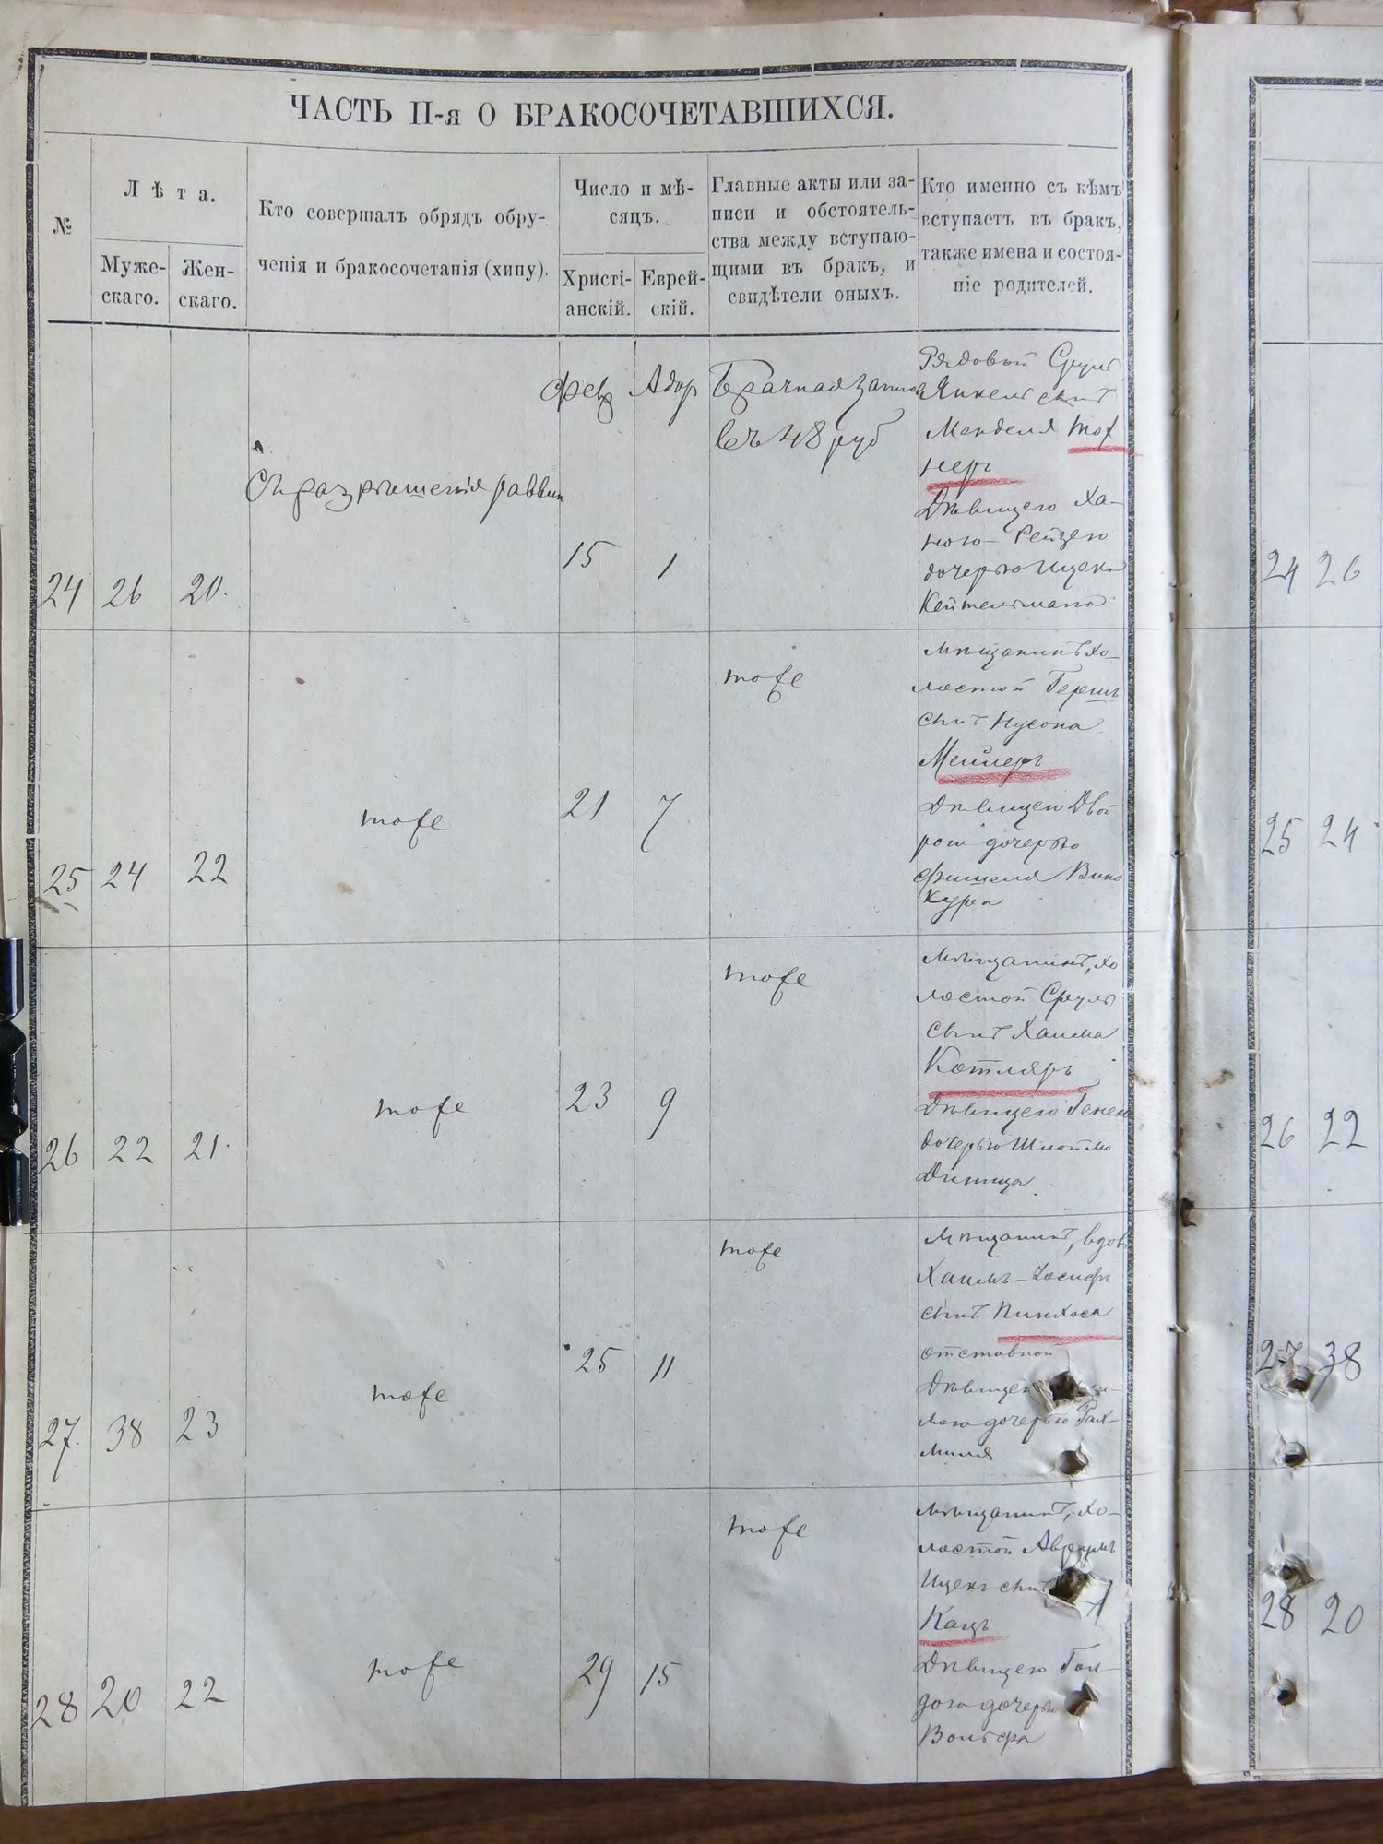 ЧАСТЬ II-я О БРАКОСОЧЕТАВШИХСЯ.
№
Лѣта.
Муже-
скаго.
Жен-
скаго.
Кто совершалъ обрядъ обру-
ченія и бракосочетанія (хипу).
Число и мѣ-
сяцъ.
Христі-
анскій.
Еврей-
скій.
Главные акты или за-
писи и обстоятель-
ства между вступаю-
щими въ бракъ, и
свидѣтели оныхъ.
Кто именно съ кѣмъ
вступаетъ въ бракъ,
также имена и состоя-
ніе родителей.
24 26 20.
Съ разрешенія раввин
Фев
15
Адар
1
Брачная запись
въ 48 руб
Рядовый Сруль
Янкель сынъ
Менделя
неръ
Дѣвицею Ха-
ною-Рейзею
дочерью Ицека
Кейтельмана
25 24 22
тоже
21 7
тоже
мѣщанинъ хо-
лостой Гершъ
сынъ Нусона
Дѣвицею Дво
рою дочерью
Фишеля Вино
кура
26 22 21.
тоже
23 9
тоже
мѣщанинъ, хо
лостой Сруль
сынъ Хаима
Котляръ
Дѣвицею Генею
дочерью Шлоймы
27. 38 23
тоже
25 11
тоже
мѣщанинъ, вдов
Хаимъ-Іосифъ
сынъ Пинхаса
отставной
Дѣвицею
лею дочерью Рах-
миля
28 20 22
тоже
29 15
тоже
мѣщанинъ, хо-
лостой Аврумъ
Ицекъ сынъ
Кацъ
Дѣвицею Гол-
дою дочерью
Вольфа
24 26
25 24
26 22
27 38
28 20